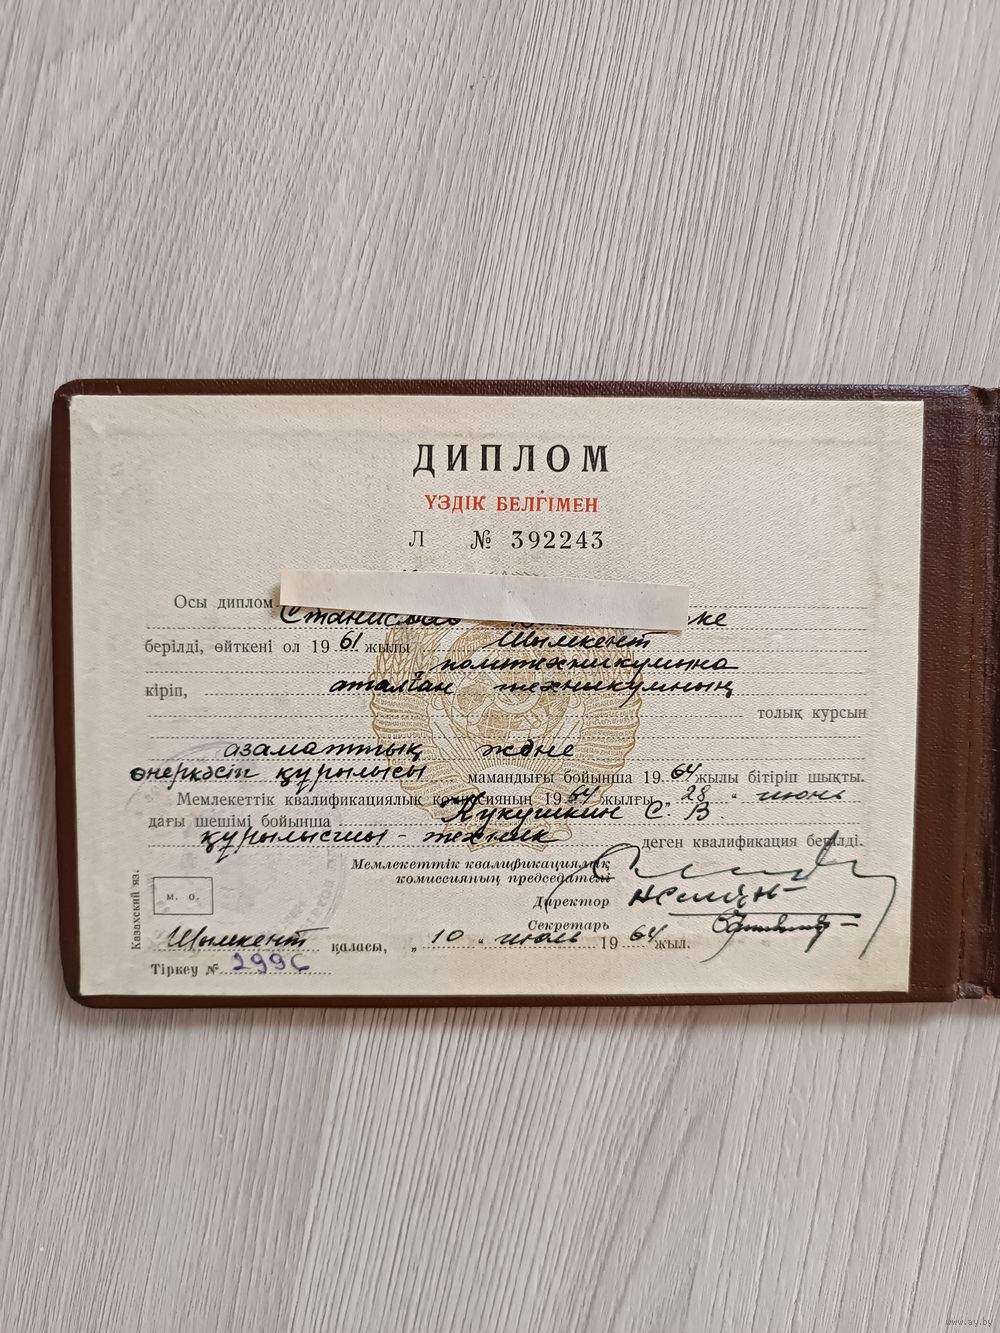 ДИПЛОМ
ҮЗДІК БЕЛГІМЕН
Л № 392243
Осы диплом
Станислав
берілді, өйткені ол 1961 жылы Шымкент
политехникумына
кіріп, аталған техникумның
толық курсын
азаматтық және
өнеркәсіп құрылысы мамандығы бойынша 1964 жылы бітіріп шықты.
Мемлекеттік квалификациялық комиссияның 1964 жылғы „28“ июнь
дағы шешімі бойынша Кукушкин С. В.
құрылысшы-техник деген квалификация берілді.
Мемлекеттік квалификациялық
комиссияның председателі
Директор
Секретарь
м. о.
Казахский яз.
Шымкент қаласы, „10“ июль 1964 жыл.
Тіркеу № 2996
www.ay.by